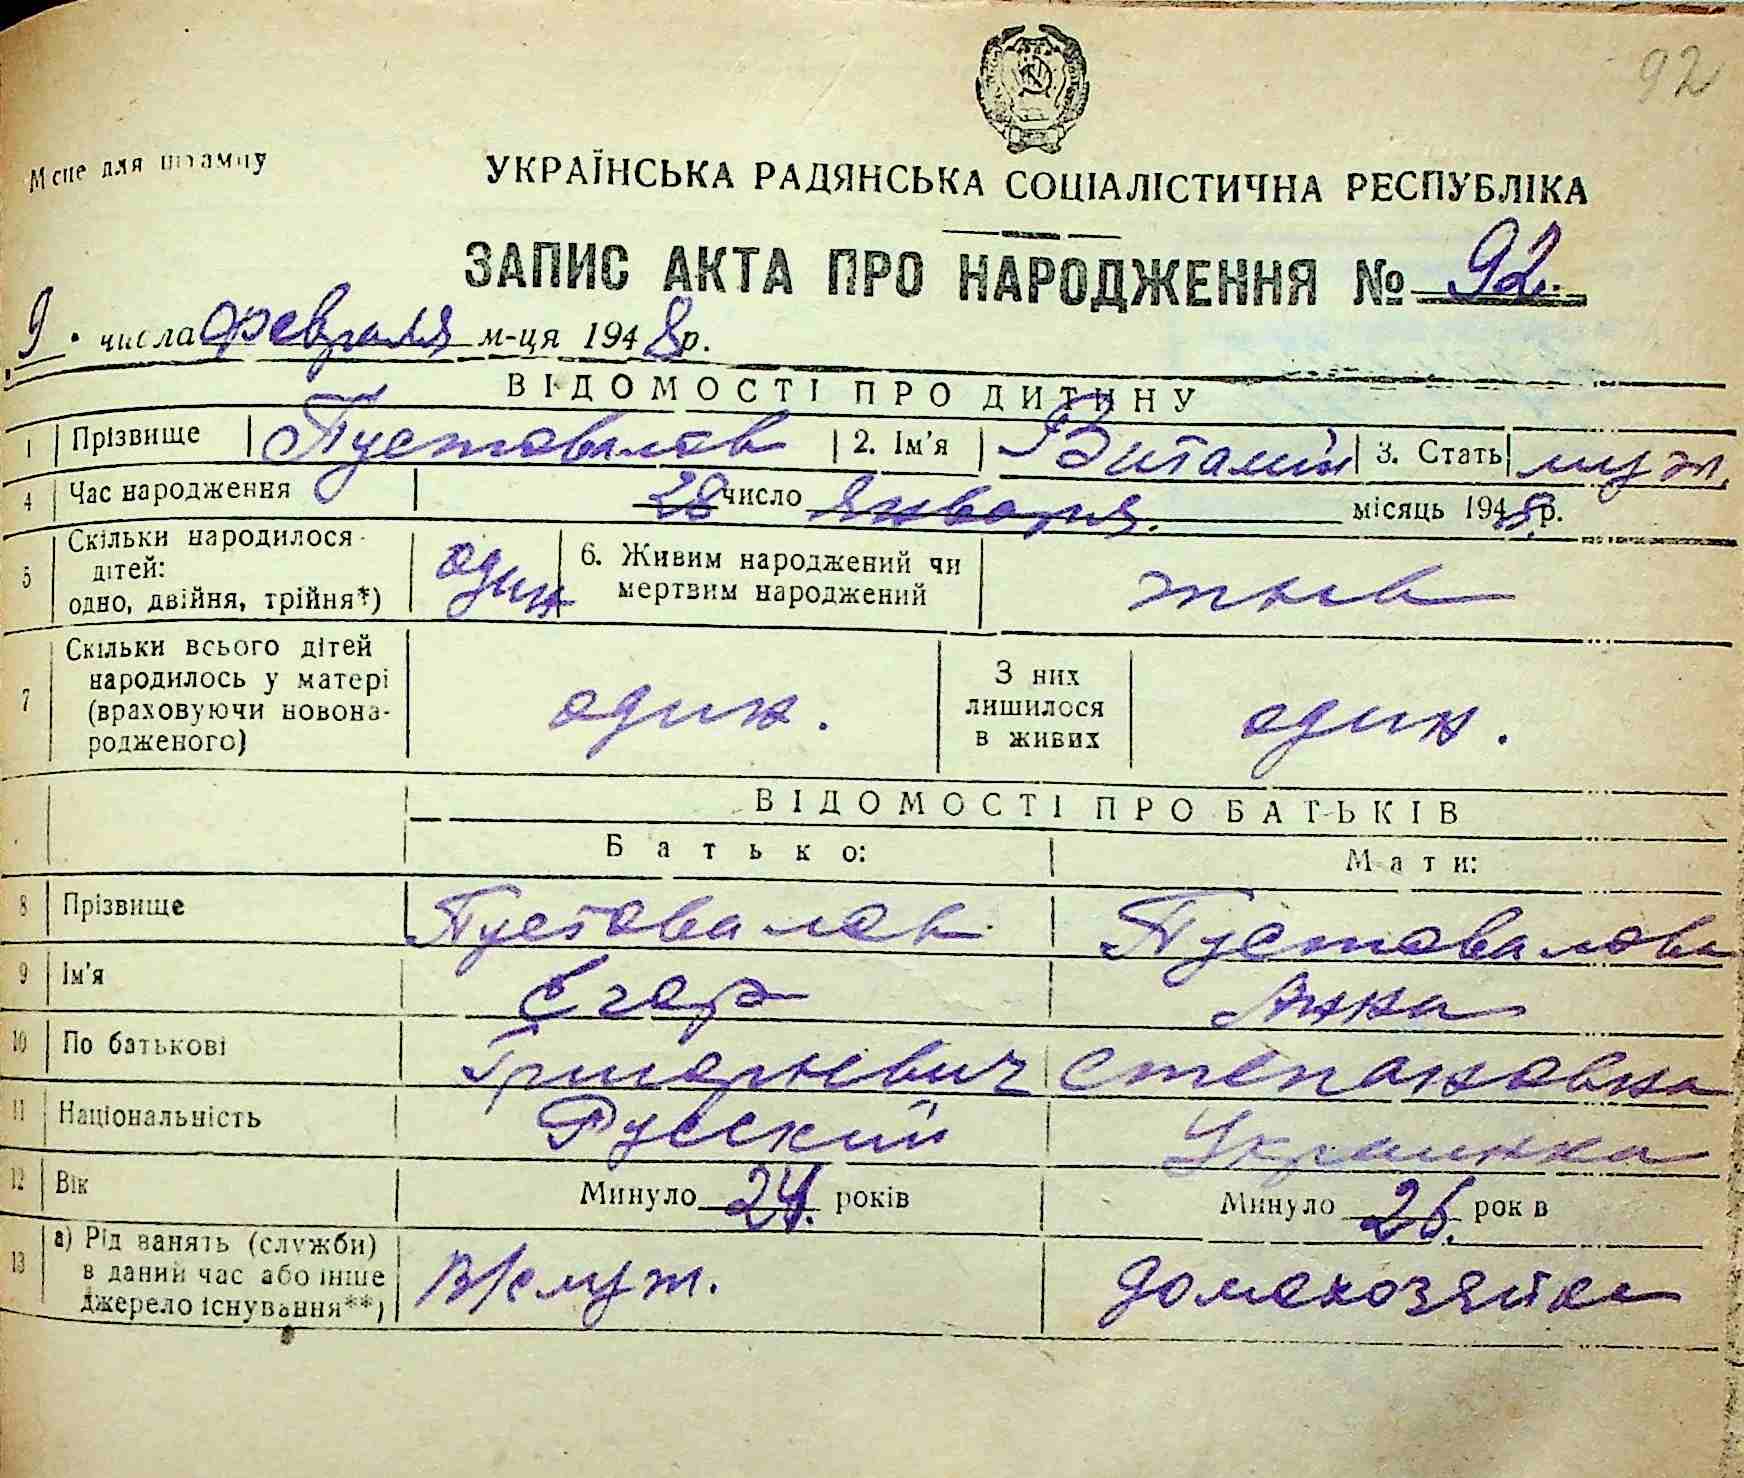 92
Місце для штампу
УКРАЇНСЬКА РАДЯНСЬКА СОЦІАЛІСТИЧНА РЕСПУБЛІКА
ЗАПИС АКТА ПРО НАРОДЖЕННЯ № 92.
9. числа февраля м-ця 1948 р.
ВІДОМОСТІ ПРО ДИТИНУ
1 Прізвище Пустовалов 2. Ім'я Виталий 3. Стать муж.
4 Час народження 28 число января. місяць 1948 р.
5 Скільки народилося дітей: одно, двійня, трійня*) один 6. Живим народжений чи мертвим народжений жив
7 Скільки всього дітей народилось у матері (враховуючи новонародженого) один. З них лишилося в живих один.
ВІДОМОСТІ ПРО БАТЬКІВ
Батько: Мати:
8 Прізвище Пустовалов Пустовалова
9 Ім'я Егор Анна
10 По батькові Григорьевич Степановна
11 Національність Русский Украинка
12 Вік Минуло 24. років Минуло 26. років
13 а) Рід занять (служби) в даний час або інше джерело існування**) в/служ. домохозяйка